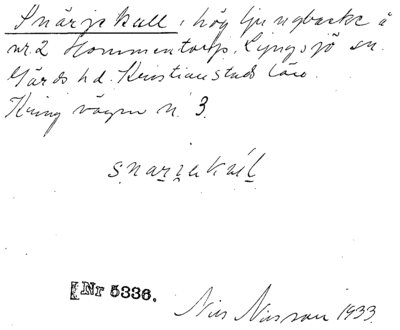 Snärjekull, hög ljungbacke å
nr. 2 Hommentorp, Lyngsjö sn.
Gärds hd. Kristianstads län.
Kring vägen n. 3.
snarjakúl
Nr 5336.
Nils Nilsson 1933.